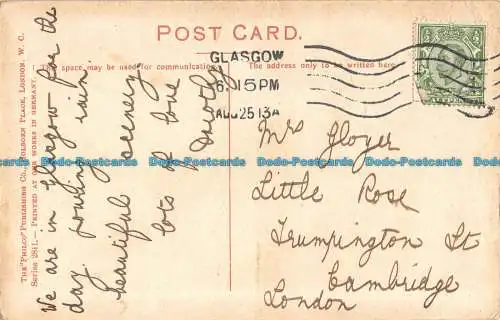 POST CARD.
This space may be used for communication.
The address only to be written here.
GLASGOW
6.15PM
AUG 25 13A
THE "PHILCO" PUBLISHING CO., HOLBORN PLACE, LONDON. W. C.
Series 2811. — PRINTED AT OUR WORKS IN GERMANY.
We are in Glasgow for the
day pouring rain.
beautiful scenery,
lots of love
Dorothy
Mrs Glover
Little Rose
Trumpington St
Cambridge
London
Dodo-Postcards